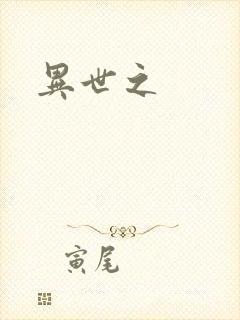 異世之
寅尾